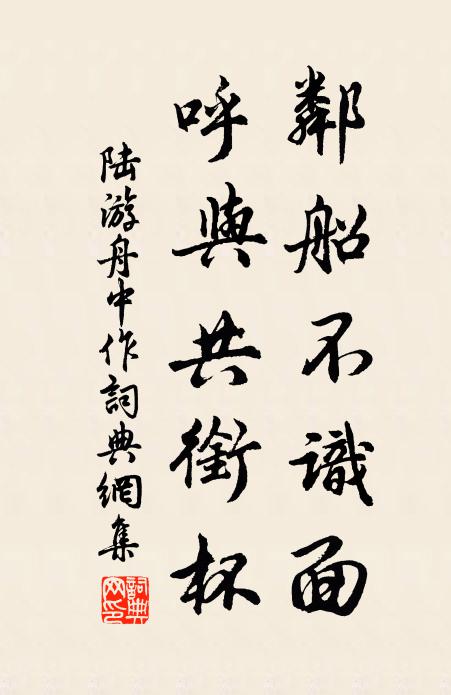 鄰船不識面
呼與共銜杯
陸游舟中作詞典網集
詞典网印